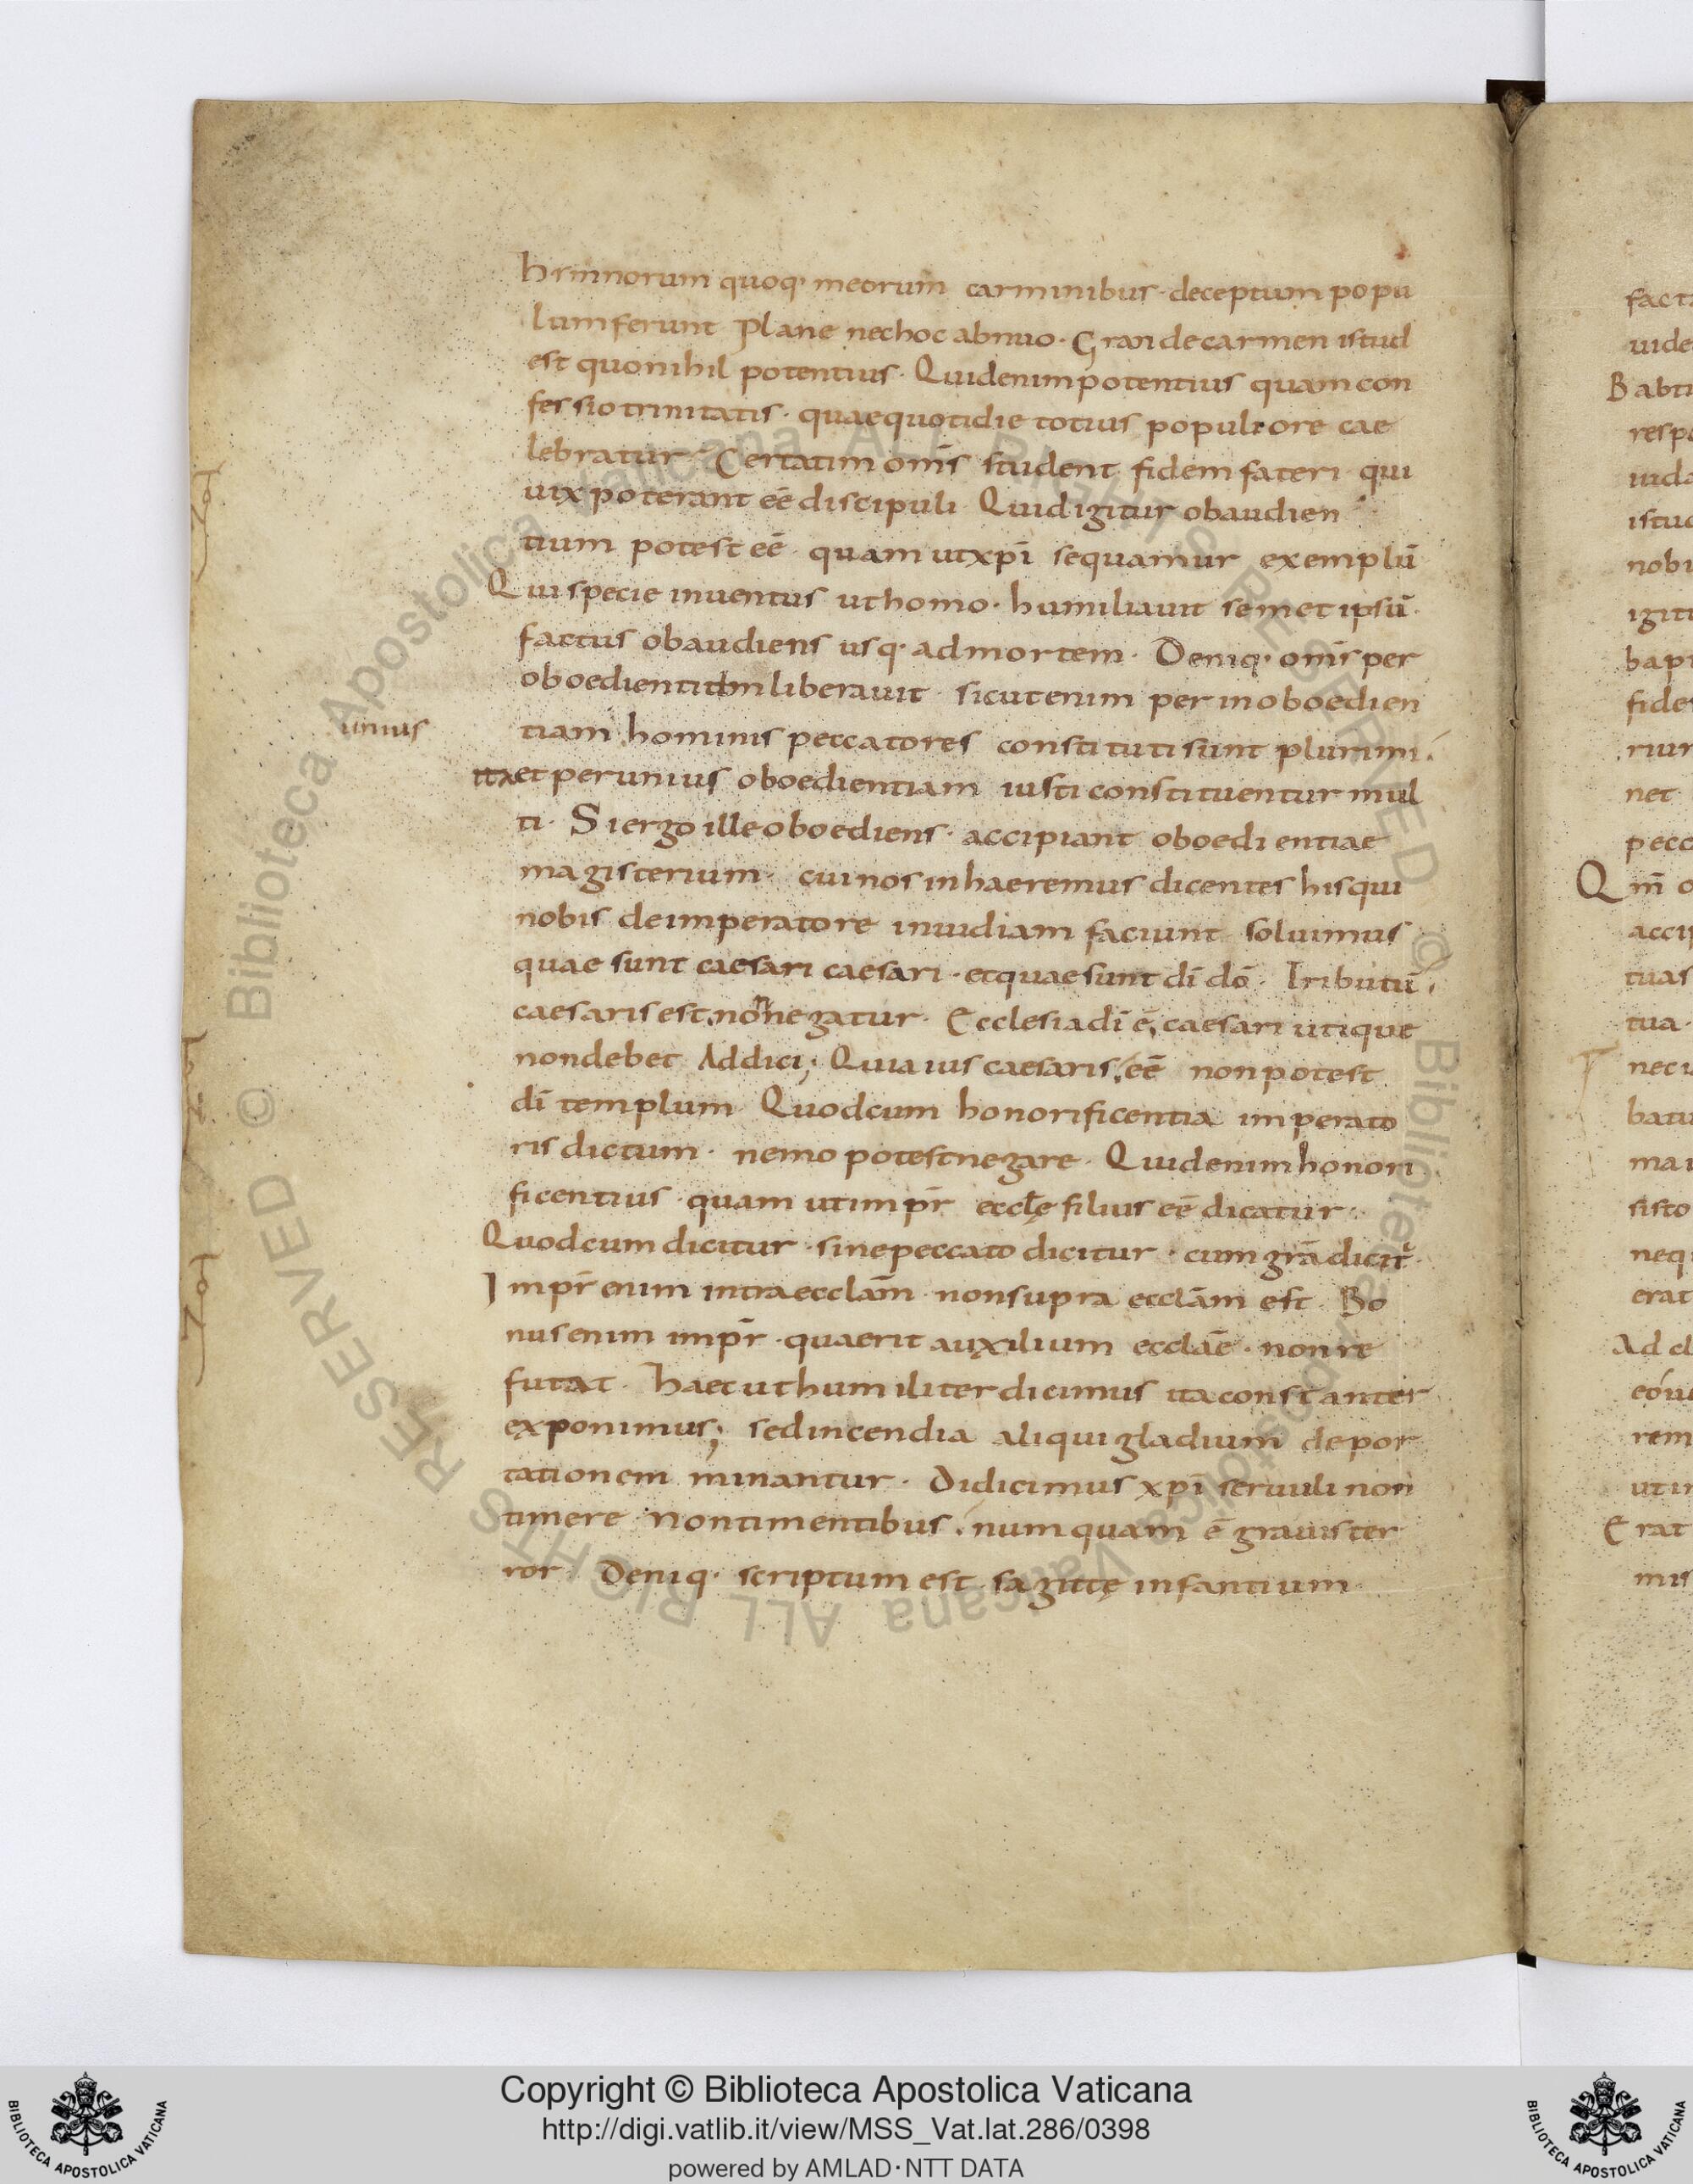 hymnorum quoq· meorum carminibus · deceptum popu
lum ferunt Plane nec hoc abnuo · Grande carmen istud
est quo nihil potentius · Quid enim potentius quam con
fessio trinitatis · quae quotidie totius populi ore cae
lebratur · Certatim om̄s student fidem fateri qui
uix poterant eē discipuli Quid igitur obaudien
tium potest eē · quam ut xp̄i sequamur exemplū
Qui specie inuentus ut homo · humiliauit semet ipsū ·
factus obaudiens usq· ad mortem · Deniq· om̄s per
oboedientiam liberauit · sicut enim per inoboedien
unius
tiam hominis peccatores constituti sunt plurimi ·
ita et per unius oboedientiam iusti constituentur mul
ti · Si ergo ille oboediens · accipiant oboedientiae
magisterium · cui nos inhaeremus dicentes his qui
nobis de imperatore inuidiam faciunt soluimus
quae sunt caesari caesari · et quae sunt dī dō · Tributū ·
caesaris est, non negatur · Ecclesia dī ē, caesari utique
non debet Addici; Quia ius caesaris, eē non potest
dī templum Quod cum honorificentia imperato
ris dictum · nemo potest negare · Quid enim honori
ficentius · quam ut imp̄r eccl̄ę filius eē dicatur ·
Quod cum dicitur · sine peccato dicitur · cum grā dicit̄ ·
Imp̄r enim intra ecclām · non supra ecclām est Bo
nus enim imp̄r · quaerit auxilium ecclāe · non re
futat · Haec ut humiliter dicimus ita constanter
exponimus; sed incendia aliqui gladium depor
tationem minantur · Didicimus xp̄i seruuli non
timere Non timentibus · numquam ē grauis ter
ror Deniq· scriptum est sagittę infantium
fact
uide
Babti
resp
iuda
istuc
nobi
igitu
bapt
fide
rium
net
pecc
Qm̄ o
accip
tuas
tua ·
nec u
batu
mai
sisto
neq
erat
Ad el
eóu
rem
ut in
Erat
mis
© Biblioteca Apostolica Vaticana ALL RIGHTS RESERVED © Biblioteca Apostolica Vaticana ALL RIGHTS RESERVED
Copyright © Biblioteca Apostolica Vaticana
http://digi.vatlib.it/view/MSS_Vat.lat.286/0398
powered by AMLAD·NTT DATA
BIBLIOTECA APOSTOLICA VATICANA
BIBLIOTECA APOSTOLICA VATICANA